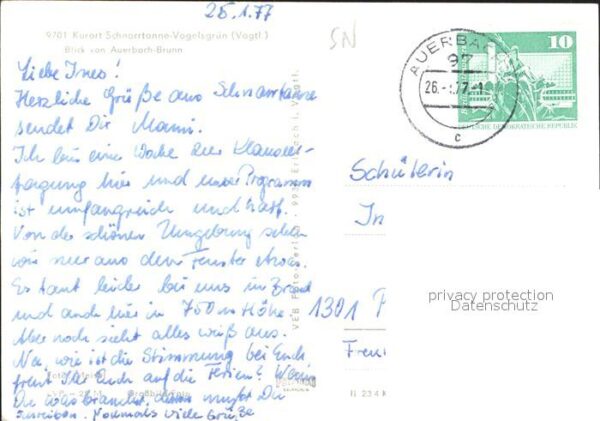 25.1.77
9701 Kurort Schnarrtanne-Vogelsgrün (Vogtl.)
Blick von Auerbach-Brunn
SN
Liebe Ines!
Herzliche Grüße aus Schnarrtanne
sendet Dir Mami.
Ich bin eine Woche zur
tagung hier und unser Programm
ist umfangreich und hart.
Von der schönen Umgebung sehen
wir nur aus dem Fenster etwas.
Es taut leider bei uns in
und auch hier in 750 m Höhe
Aber noch sieht alles weiß aus.
Na, wie ist die Stimmung bei Euch
freut Ihr Euch auf die Ferien? Wenn
Du was brauchst, dann mußt Du
schreiben. Nochmals viele Grüße
VEB Foto-Verlag
AUERBACH
97
26.-1.77-1
c
10
DEUTSCHE DEMOKRATISCHE REPUBLIK
Schülerin
In
1301
privacy protection
Datenschutz